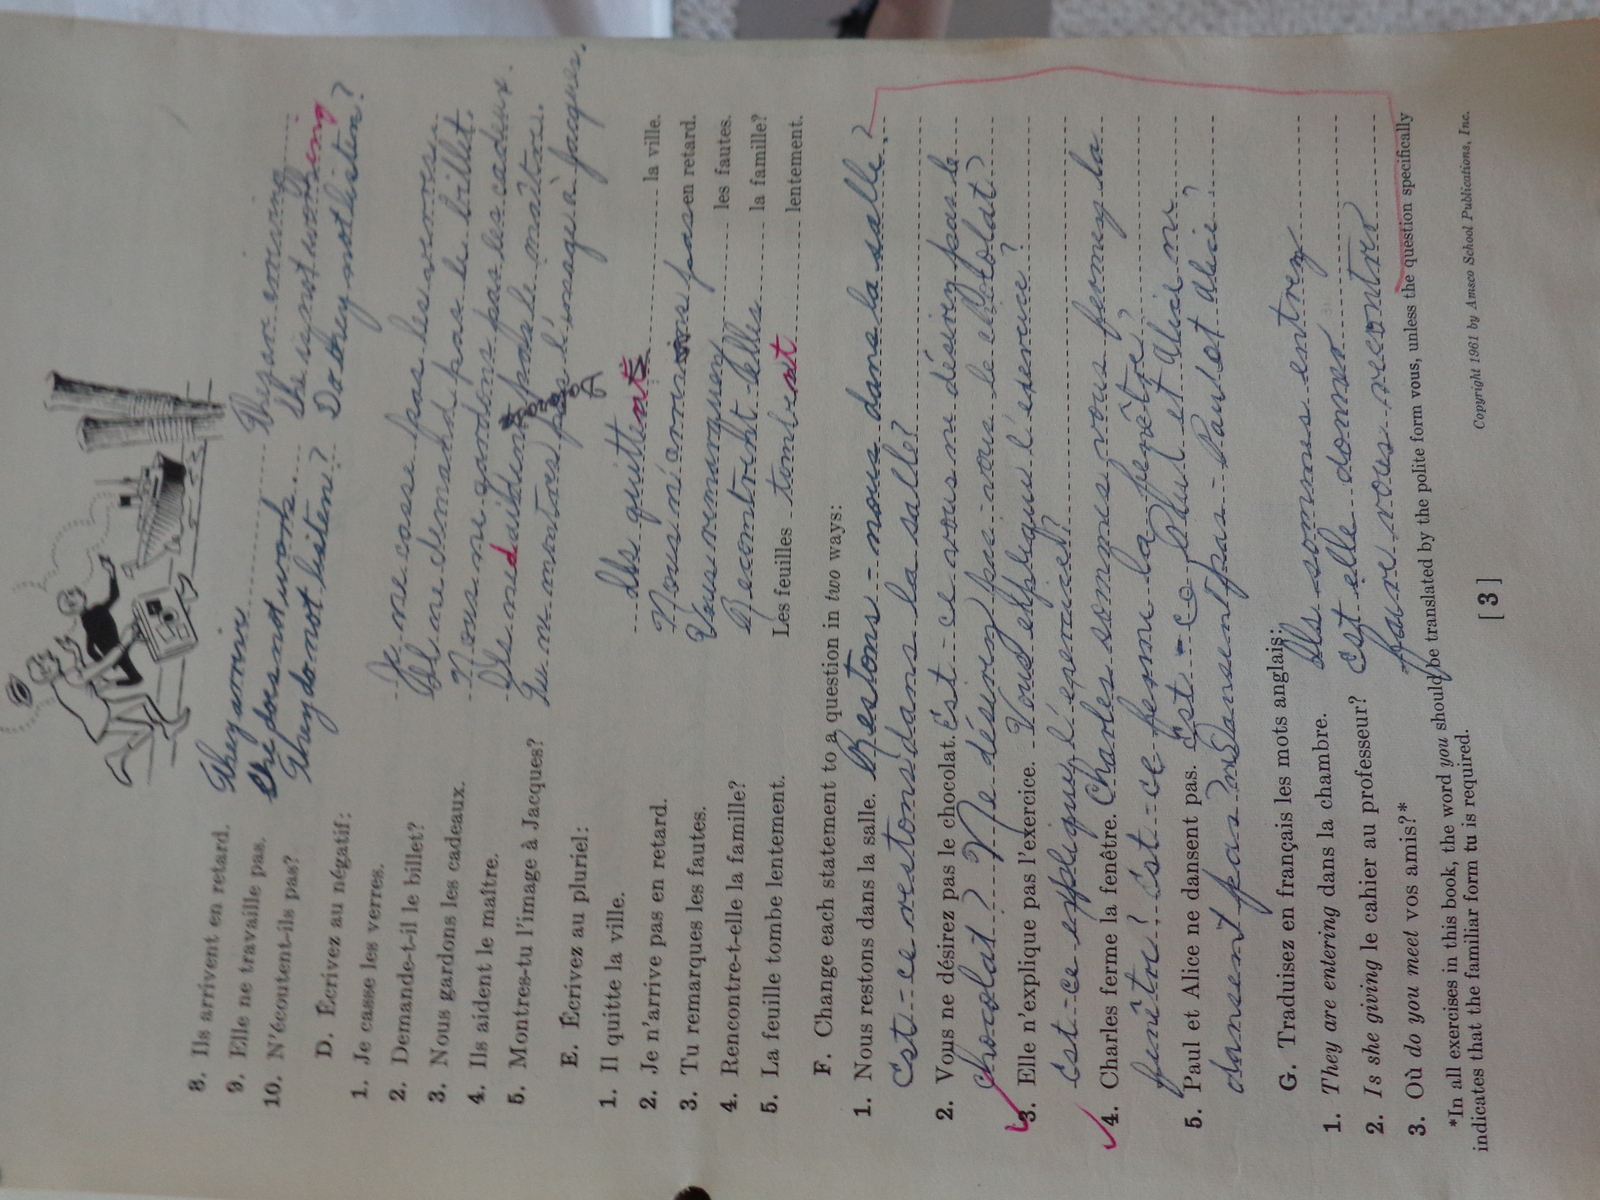 8. Ils arrivent en retard. They arrive They are arriving
9. Elle ne travaille pas. She does not work She is not working
10. N'écoutent-ils pas? They do not listen? Do they not listen?
D. Écrivez au négatif:
1. Je casse les verres. Je ne casse pas les verres.
2. Demande-t-il le billet? Il ne demand pas le billet.
3. Nous gardons les cadeaux. Nous ne gardons pas les cadeux.
4. Ils aident le maître. Ils ne d aident pas le maître.
5. Montres-tu l'image à Jacques? Tu ne montres pas l'image à Jacques.
E. Écrivez au pluriel:
1. Il quitte la ville. Ils quittent la ville.
2. Je n'arrive pas en retard. Nous n'arrivons pas en retard.
3. Tu remarques les fautes. Vous remarquez les fautes.
4. Rencontre-t-elle la famille? elles la famille?
5. La feuille tombe lentement. Les feuilles tombent lentement.
F. Change each statement to a question in two ways:
1. Nous restons dans la salle. Restons-nous dans la salle?
Est-ce restons dans la salle?
2. Vous ne désirez pas le chocolat. Est-ce vous ne désirez pas le
chocolat? Ne désirez pas-vous le chocolat?
3. Elle n'explique pas l'exercice. Vous explique l'exercice?
Est-ce explique l'exercice?
4. Charles ferme la fenêtre. Charles sommes vous fermez la
fenêtre? Est-ce ferme la fenêtre?
5. Paul et Alice ne dansent pas. Est-ce Paul et Alice ne
dansent pas? ne Dansent pas-Paul et Alice?
G. Traduisez en français les mots anglais:
1. They are entering dans la chambre. Ils sommes entrez
2. Is she giving le cahier au professeur? Est elle donner
3. Où do you meet vos amis?* faire vous recontrer
*In all exercises in this book, the word you should be translated by the polite form vous, unless the question specifically
indicates that the familiar form tu is required.
[ 3 ]
Copyright 1961 by Amsco School Publications, Inc.